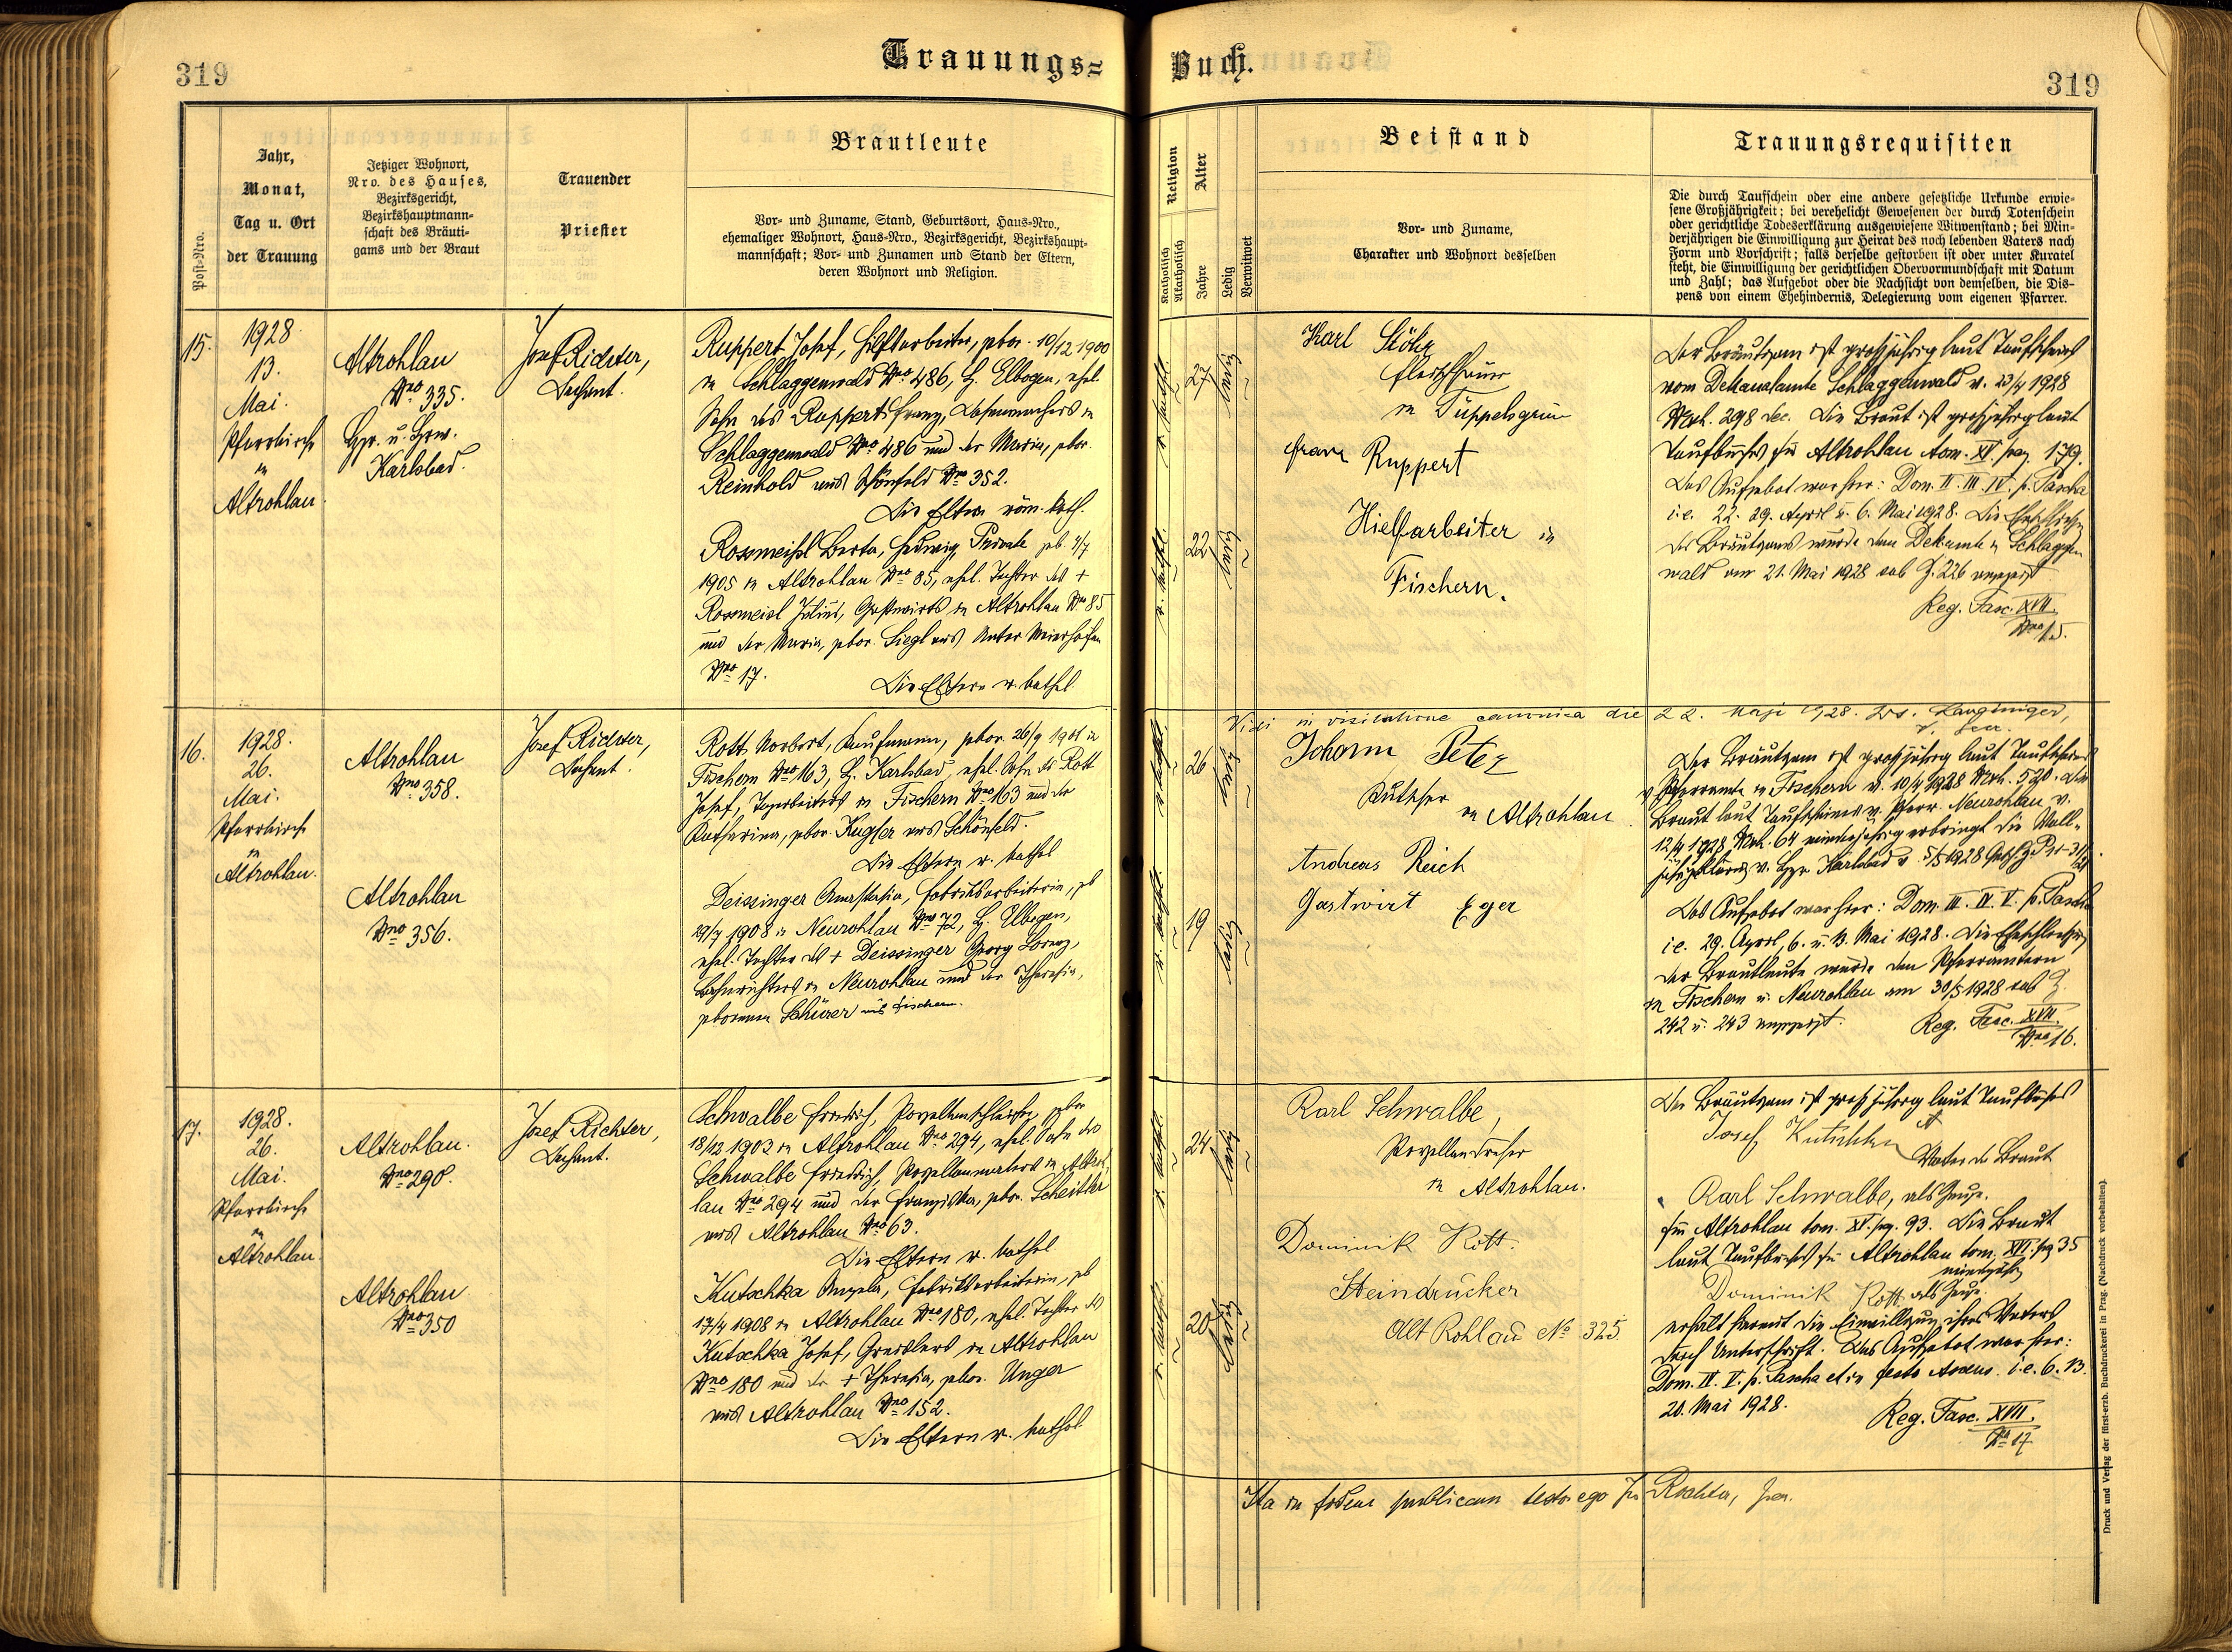 319
Trauungs=
Buch.
319
Post-Nro.
Jahr,
Monat,
Tag u. Ort
der Trauung
Jetziger Wohnort,
Nro. des Hauses,
Bezirksgericht,
Bezirkshauptmann=
schaft des Bräuti=
gams und der Braut
Trauender
Priester
Brautleute
Vor= und Zuname, Stand, Geburtsort, Haus=Nro.,
ehemaliger Wohnort, Haus=Nro., Bezirksgericht, Bezirkshaupt=
mannschaft; Vor= und Zunamen und Stand der Eltern,
deren Wohnort und Religion.
Religion
Katholisch
Akatholisch
Alter
Jahre
Ledig
Verwitwet
Beistand
Vor= und Zuname,
Charakter und Wohnort desselben
Trauungsrequisiten
Die durch Taufschein oder eine andere gesetzliche Urkunde erwie=
sene Großjährigkeit; bei verehelicht Gewesenen der durch Totenschein
oder gerichtliche Todeserklärung ausgewiesene Witwenstand; bei Min=
derjährigen die Einwilligung zur Heirat des noch lebenden Vaters nach
Form und Vorschrift; falls derselbe gestorben ist oder unter Kuratel
steht, die Einwilligung der gerichtlichen Obervormundschaft mit Datum
und Zahl; das Aufgebot oder die Nachsicht von demselben, die Dis=
pens von einem Ehehindernis, Delegierung vom eigenen Pfarrer.
15.
1928
13.
Mai.
Pfarrkirche
in
Altrohlau.
Altrohlau
Nro 335.
Karlsbad.
Josef Richter,
Dechant.
Ruppert Josef, Hilfsarbeiter, gebor. 10/12 1900
in Schlaggenwald Nro 486, B. Elbogen, ehel.
Sohn des Ruppert Franz, in
Schlaggenwald Nro 486 und der Maria, gebor.
Reinhold aus Schönfeld Nro 352.
Die Eltern röm. kath.
Rossmeisl Berta, Hedwig, Private geb. 4/7
1905 in Altrohlau Nro 85, ehel. Tochter des +
Rossmeisl Julius, Gastwirts in Altrohlau Nro 85
und der Maria, gebor. Siegl aus Unter Maierhöfen
Nro 17.
Die Eltern r. kathol.
r. kathol.
27
ledig
r. kathol.
22
ledig
Karl Stöhr
Fleischhauer
in Tüppelsgrün
Franz Ruppert
Hielfarbeiter in
Fischern.
Der Bräutigam ist großjährig laut Taufscheins
vom Dekanalamte Schlaggenwald v. 23/4 1928
Nexh. 298 dec. Die Braut ist großjährig laut
Taufbuches für Altrohlau tom. XV. pag. 179.
Das Aufgebot war hier: Dom. II. III. IV. p. Pascha
i.e. 22. 29. April u. 6. Mai 1928. Die Eheschließung
des Bräutigams wurde dem Dekanate in Schlaggen
wald am 21. Mai 1928 sub G. 226 angezeigt
Reg. Fasc. XVII.
Nro 15.
Vidi in visitatione canonica die 22. Maji 1928.
16.
1928.
26.
Mai.
Pfarrkirche
in
Altrohlau.
Altrohlau
Nro 358.
Altrohlau
Nro 356.
Josef Richter,
Dechant.
Rott Norbert, Kaufmann, gebor. 26/9 1901 in
Fischern Nro 163, B. Karlsbad, ehel. Sohn des Rott
Josef, Tagarbeiters in Fischern Nro 163 und der
Katharina, gebor. Kugler aus Schönfeld.
Die Eltern r. kathol
Deissinger Anastasia, Fabriksarbeiterin, geb
29/7 1908 in Neurohlau Nro 72, B. Elbogen,
ehel. Tochter des + Deissinger Georg Lorenz,
Bahnwächters in Neurohlau und der Theresia,
geborenen Schürer aus Fischern.
r. kathol.
26
ledig
r. kathol.
19
ledig
Johann Peter
Kutscher
in Altrohlau.
Andreas Reich
Gastwirt Eger
Der Bräutigam ist großjährig laut Taufscheins
v. Pfarramte in Fischern v. 10/4 1928 Nexh. 520. Die
Braut laut Taufscheines v. Pfarr. Neurohlau v.
12/4 1928 Nexh. 64 minderjährig erbringt die Voll=
Karlsbad v. 5/5 1928
Das Aufgebot war hier: Dom. III. IV. V. p. Pascha
i.e. 29. April, 6. u. 13. Mai 1928. Die Eheschließung
der Brautleute wurde den Pfarrämtern
in Fischern u. Neurohlau am 30/5 1928 sub G.
242 u. 243 angezeigt.
Reg. Fasc. XVII.
Nro 16.
17.
1928.
26.
Mai.
Pfarrkirche
in
Altrohlau.
Altrohlau.
Nro 290.
Altrohlau
Nro 350
Josef Richter,
Dechant.
Schwalbe Friedrich, Porzellanschleifer, gebor
18/12 1903 in Altrohlau Nro 294, ehel. Sohn des
Schwalbe Friedrich, Porzellanmalers in Altroh
lau Nro 294 und der Franziska, gebor. Scheitler
aus Altrohlau Nro 63.
Die Eltern r. kathol
Kutschka Angela, Fabriksarbeiterin, geb
17/4 1908 in Altrohlau Nro 180, ehel. Tochter des
Kutschka Josef, Greislers in Altrohlau
Nro 180 und der + Theresia, gebor. Unger
aus Altrohlau Nro 152.
Die Eltern r. kathol
r. kathol.
24
ledig
r. kathol.
20
ledig
Karl Schwalbe,
Porzellandreher
in Altrohlau.
Dominik Rott.
Steindrucker
Alt Rohlau No 325.
Der Bräutigam ist großjährig laut Taufbuches
Josef Kutschka
Vater der Braut
Karl Schwalbe, als Zeuge.
für Altrohlau tom. XV. pg. 93. Die Braut
laut Taufbuches für Altrohlau tom. XVI. pg 35
minderjährig
Dominik Rott als Zeuge.
erhält hiermit die Einwilligung ihres Vaters
durch Unterschrift. Das Aufgebot war hier:
Dom. IV. V. p. Pascha et in festo Ascens. i.e. 6. 13.
20. Mai 1928.
Reg. Fasc. XVII.
Nro 17
Ita in fidem publicam testor ego Jos Richter,
Druck und Verlag der fürst-erzb. Buchdruckerei in Prag. (Nachdruck vorbehalten).